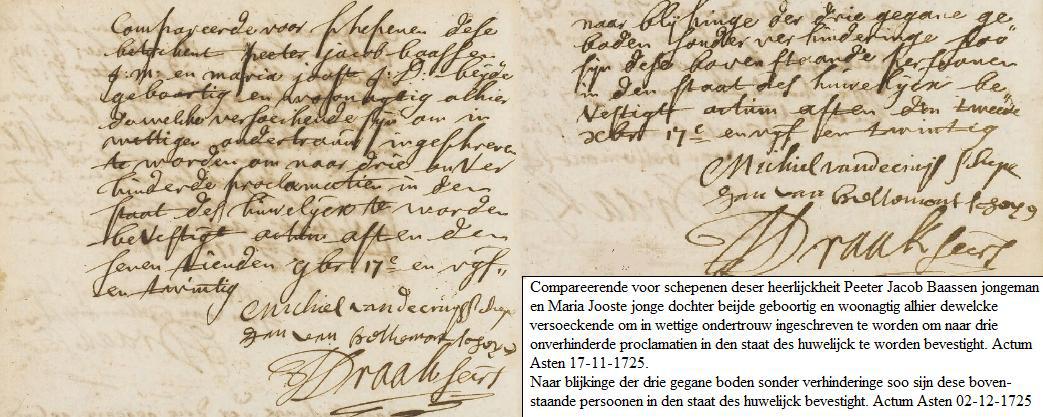 Compareerde voor schepenen dese
Peeter Jacob Baassen
j.m. en maria joost j.D. beijde
geboortig en woonagtig alhier
dewelke versoekende sijn om in
wettigen ondertrouw ingeschreven
te worden om naar drie onver
hinderde proclamatien in den
staat des huwelijck te worden
bevestigt actum asten den
seven tienden 9br 17c en vijf
en twintig
Michiel vandecruijs
Jan van Bellemont
Draak
naar blijkinge der drie gegane ge
boden sonder verhinderinge soo
sijn dese bovenstaande persoonen
in den staat des huwelijck be
vestigt actum asten den tweede
xbr 17c en vijf en twintig
Michiel vandecruijs
Jan van Bellemont
Draak
Compareerende voor schepenen deser heerlijckheit Peeter Jacob Baassen jongeman
en Maria Jooste jonge dochter beijde geboortig en woonagtig alhier dewelcke
versoeckende om in wettige ondertrouw ingeschreven te worden om naar drie
onverhinderde proclamatien in den staat des huwelijck te worden bevestight. Actum
Asten 17-11-1725.
Naar blijkinge der drie gegane boden sonder verhinderinge soo sijn dese boven-
staande persoonen in den staat des huwelijck bevestight. Actum Asten 02-12-1725